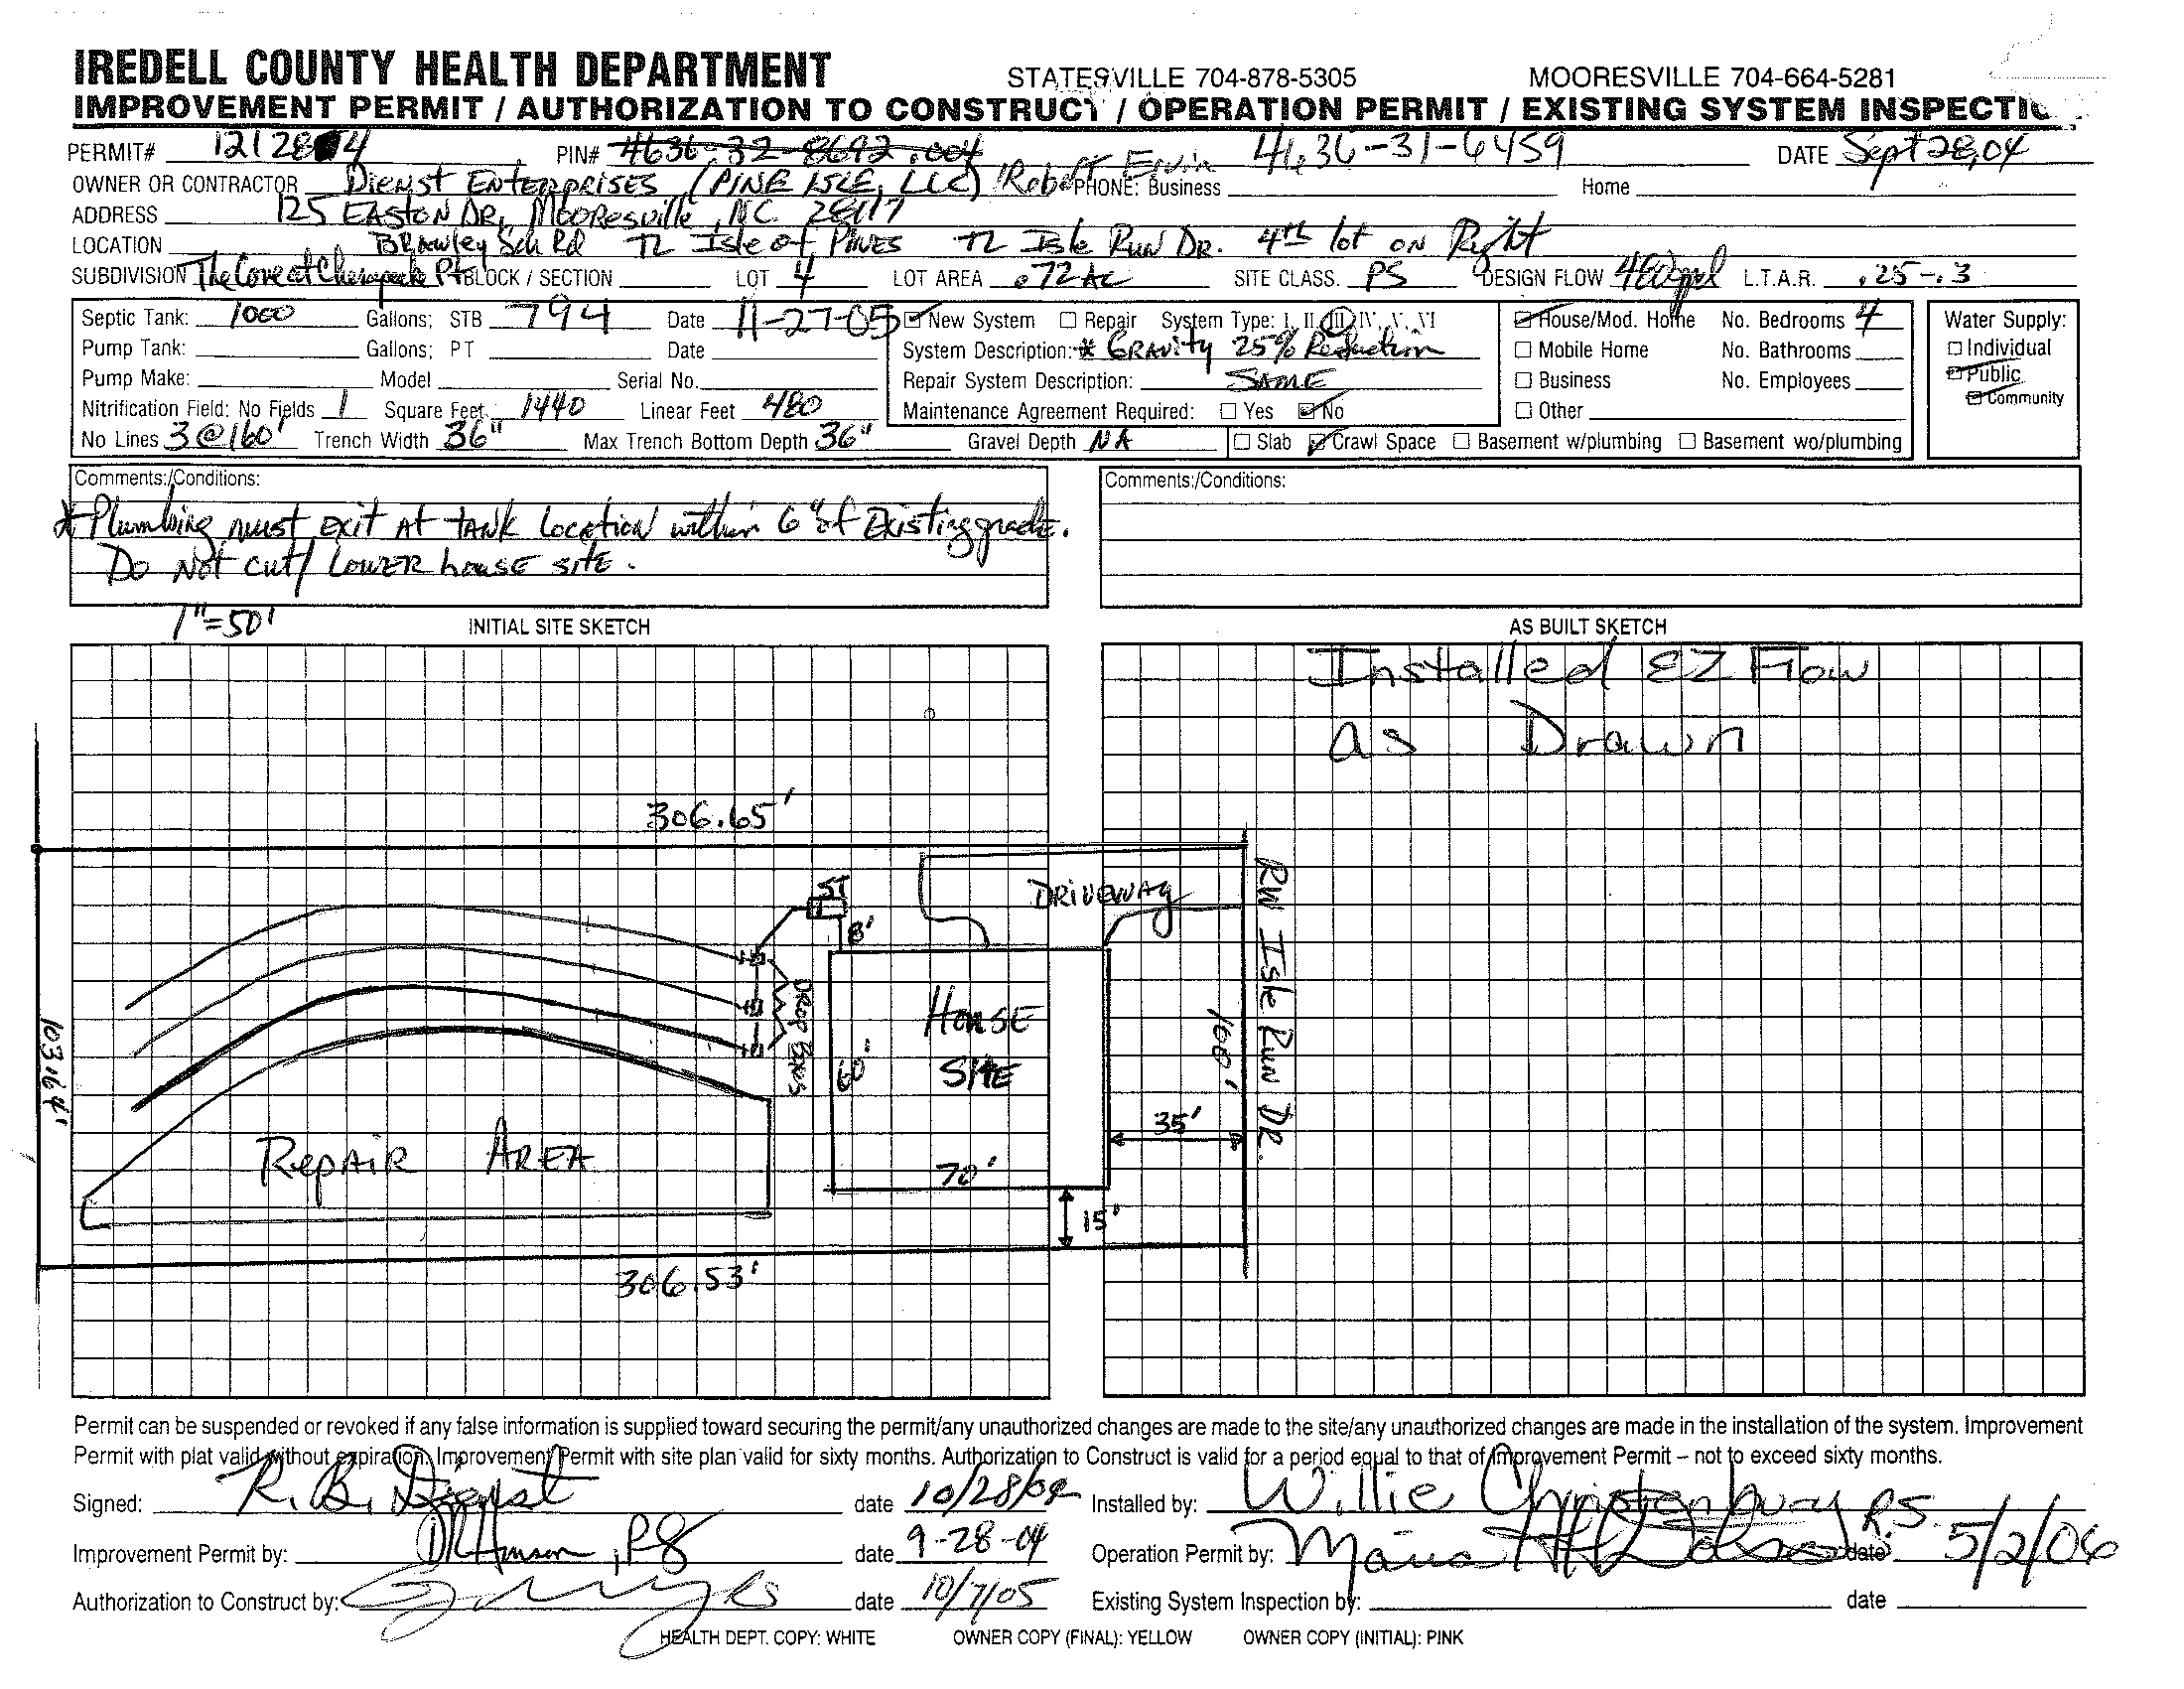 IREDELL COUNTY HEALTH DEPARTMENT STATESVILLE 704-878-5305 MOORESVILLE 704-664-5281
IMPROVEMENT PERMIT / AUTHORIZATION TO CONSTRUCT / OPERATION PERMIT / EXISTING SYSTEM INSPECTIO
PERMIT# PIN# 4636-32-8692.004 4636-31-6459 DATE Sept 28,04
OWNER OR CONTRACTOR Dienst Enterprises (PINE ISLE, LLC) Robert Ervin PHONE: Business Home
ADDRESS 125 EASTON DR, Mooresville, NC 28117
LOCATION Brawley Sch Rd TL Isle of Pines TL Isle Run Dr. 4th lot on Right
SUBDIVISION The Cove at Chesapeake Pt BLOCK / SECTION LOT 4 LOT AREA .72 AC SITE CLASS. PS DESIGN FLOW 480gpd L.T.A.R. .25-.3
Septic Tank: 1000 Gallons; STB 794 Date 11-27-05 New System Repair System Type: I, II, III, IV, V, VI House/Mod. Home No. Bedrooms 4 Water Supply:
Pump Tank: Gallons; PT Date System Description: * Gravity 25% Reduction Mobile Home No. Bathrooms Individual
Pump Make: Model Serial No. Repair System Description: SAME Business No. Employees Public
Nitrification Field: No Fields 1 Square Feet 1440 Linear Feet 480 Maintenance Agreement Required: Yes No Other Community
No Lines 3 @ 160' Trench Width 36" Max Trench Bottom Depth 36" Gravel Depth NA Slab Crawl Space Basement w/plumbing Basement wo/plumbing
Comments:/Conditions: Comments:/Conditions:
* Plumbing must exit at tank location within 6" of Existing grade.
Do Not cut/ LOWER house site.
1"=50' INITIAL SITE SKETCH AS BUILT SKETCH
Installed EZ Flow
as Drawn
306.65'
ST
DRIVEWAY
8'
RW Isle Run DR.
Drop Boxes
HOUSE
SITE
60'
100'
103.64'
35'
Repair AREA
70'
15'
306.53'
Permit can be suspended or revoked if any false information is supplied toward securing the permit/any unauthorized changes are made to the site/any unauthorized changes are made in the installation of the system. Improvement
Permit with plat valid without expiration. Improvement Permit with site plan valid for sixty months. Authorization to Construct is valid for a period equal to that of Improvement Permit – not to exceed sixty months.
Signed: R. B. Dienst date 10/28/04 Installed by: Willie Christenbury
Improvement Permit by: date 9-28-04 Operation Permit by: R.S. date 5/2/06
Authorization to Construct by: date 10/7/05 Existing System Inspection by: date
HEALTH DEPT. COPY: WHITE OWNER COPY (FINAL): YELLOW OWNER COPY (INITIAL): PINK